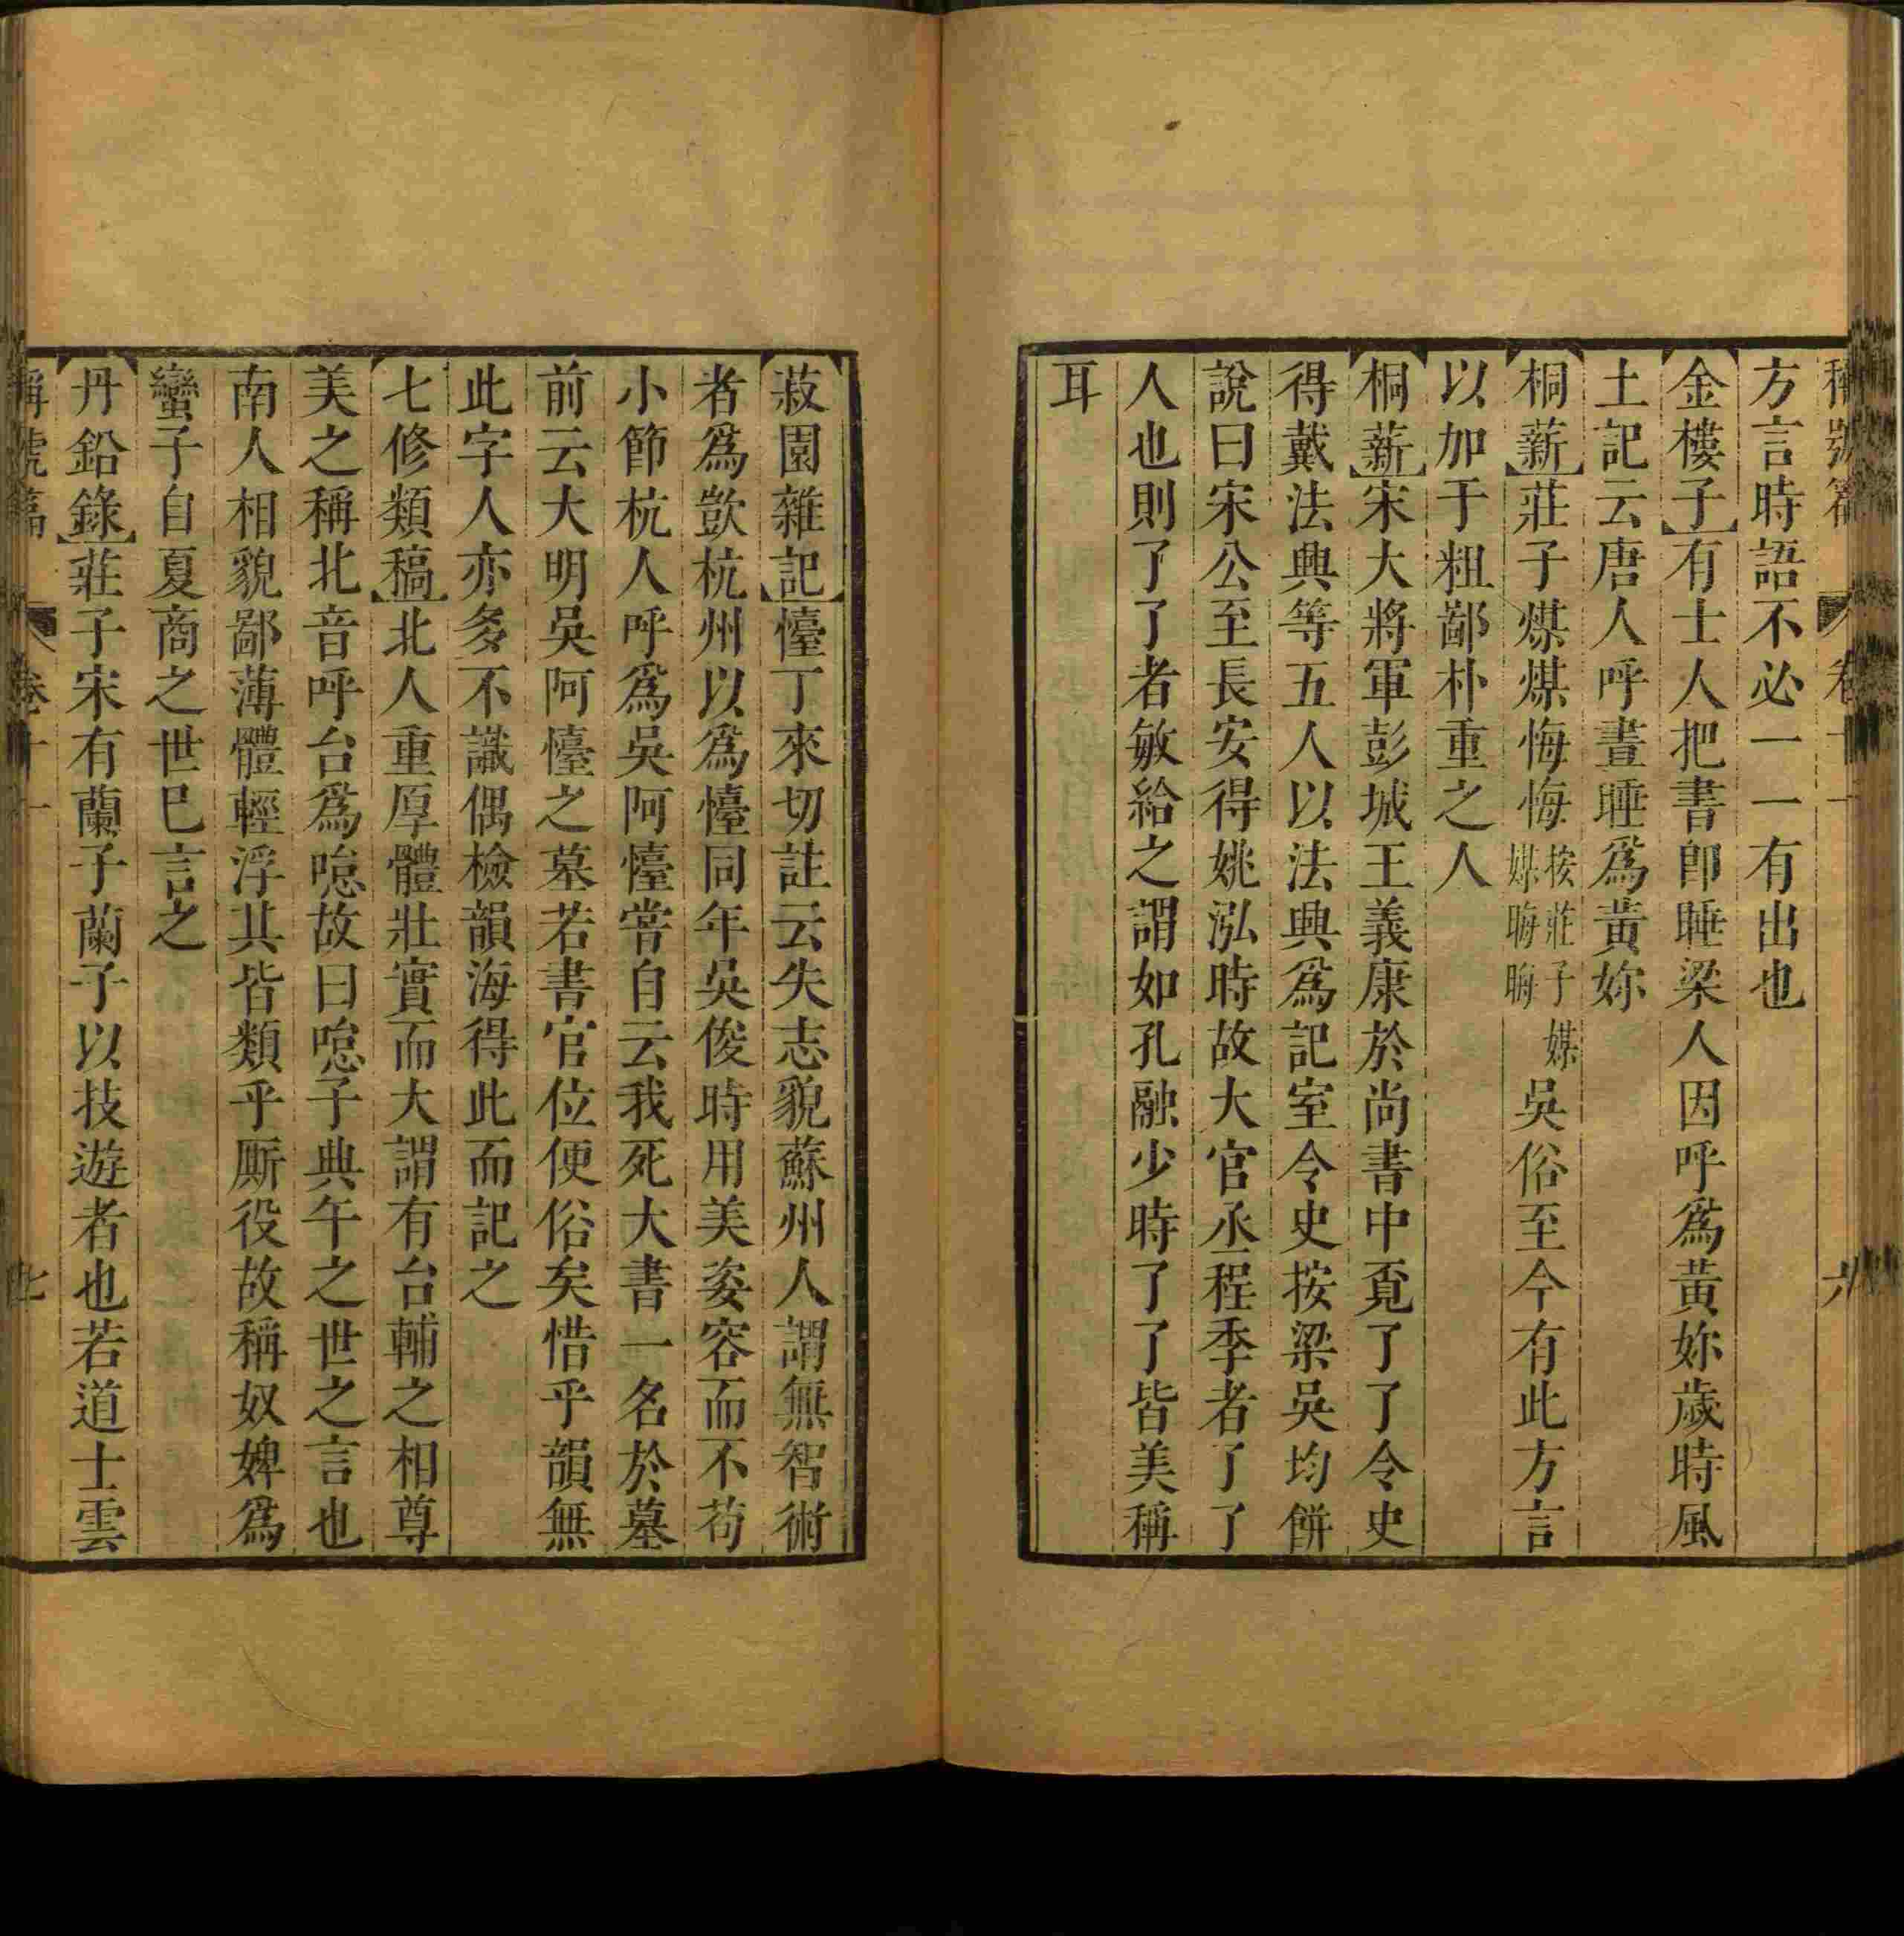 稱號篇 卷十一 六
方言時語不必一一有出也
金樓子有士人把書卽睡梁人因呼爲黃妳歲時風
土記云唐人呼晝睡爲黃妳
桐薪莊子煤煤悔悔按莊子媒媒晦晦吳俗至今有此方言
以加于粗鄙朴重之人
桐薪宋大將軍彭城王義康於尚書中覔了了令史
得戴法興等五人以法興爲記室令史按梁吳均餅
說曰宋公至長安得姚泓時故大官丞程季者了了
人也則了了者敏給之謂如孔融少時了了皆美稱
耳
菽園雜記懛丁來切註云失志貌蘇州人謂無智術
者爲歅杭州以爲懛同年吳俊時用美姿容而不苟
小節杭人呼爲吳阿懛嘗自云我死大書一名於墓
前云大明吳阿懛之墓若書官位便俗矣惜乎韻無
此字人亦多不識偶檢韻海得此而記之
七修類稿北人重厚體壯實而大謂有台輔之相尊
美之稱北音呼台爲唿故曰唿子典午之世之言也
南人相貌鄙薄體輕浮其皆類乎厮役故稱奴婢爲
蠻子自夏商之世巳言之
丹鉛錄莊子宋有蘭子蘭子以技遊者也若道士雲
稱號篇 卷十一 七